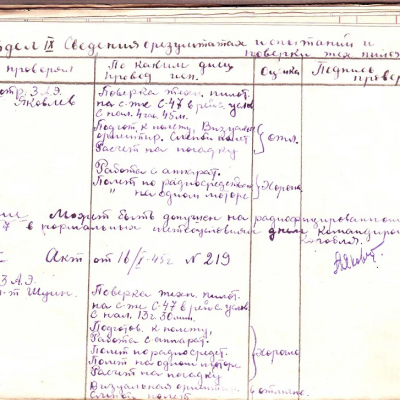 здел IX Сведения о результатах испытаний и
проверки тех. пилот
проверял
По каким дисц.
провод. исп.
Оценка
Подпись
провер
стр. З А.Э.
Яковлев
Поверка техн. пилот.
на с-те С-47 в рейс. услов
с нал. 4 час. 45 м.
Подгот. к полету, Визуальн
ориентир. Слепой полет
Расчет на посадку
отл.
Работа с аппарат.
Полет по радиосредствам
" на одном моторе
Хорошо
Может быть допущен на радиофицированной
7 в нормальных метеоусловиях днем командиром
корабля.
Акт от 16/I-45г. N 219
З А.Э.
Поверка техн. пилот.
на с-те С-47 в рейс. услов
с нал. 13 г. 30 мин.
Подготов. к полету,
Работа с аппарат.
Полет по радиосредст.
Полет на одном моторе
Расчет на посадку
Хорошо
Визуальная ориентир.
Слепой полет
отлично.